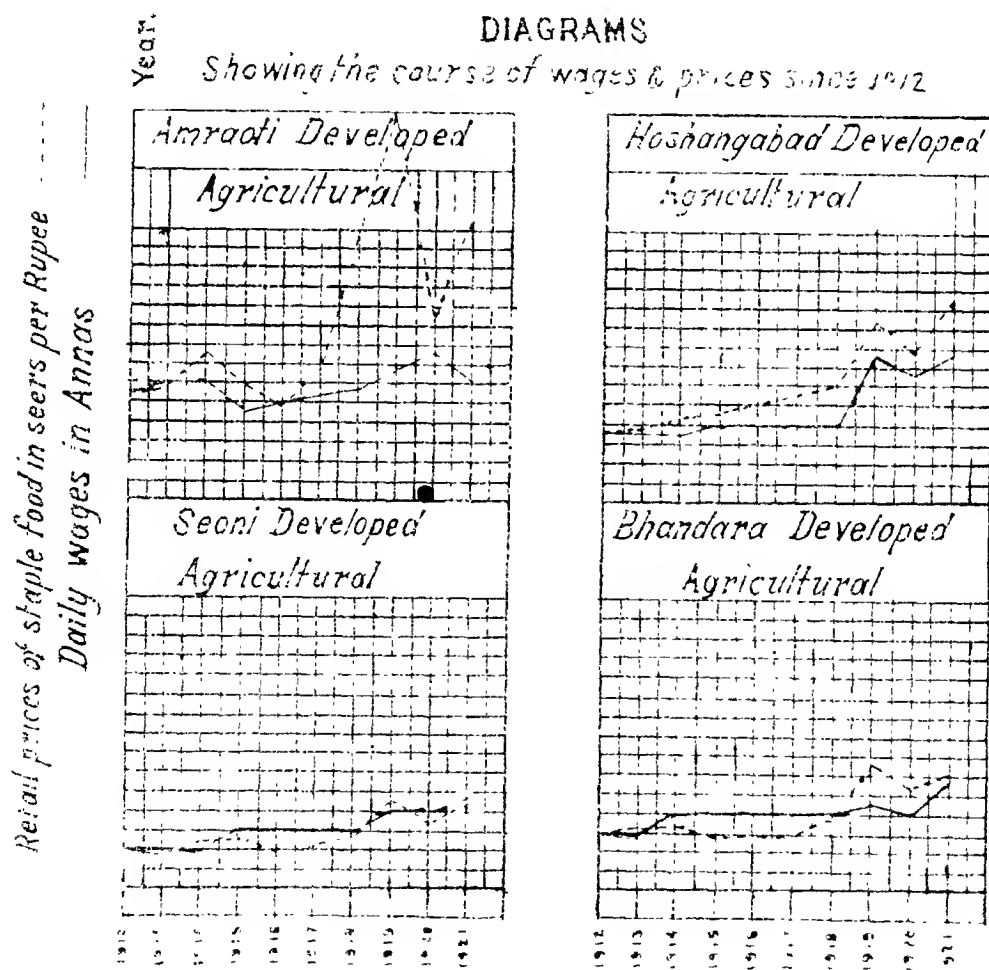 DIAGRAMS
Showing the course of wages & prices since 1912
Year.
Retail prices of staple food in seers per Rupee -----
Daily wages in Annas
Amraoti Developed
Agricultural
Hoshangabad Developed
Agricultural
Seoni Developed
Agricultural
Bhandara Developed
Agricultural
1912 1915 1916 1917 1918 1919 1920 1921
1912 1913 1914 1915 1916 1917 1918 1919 1920 1921